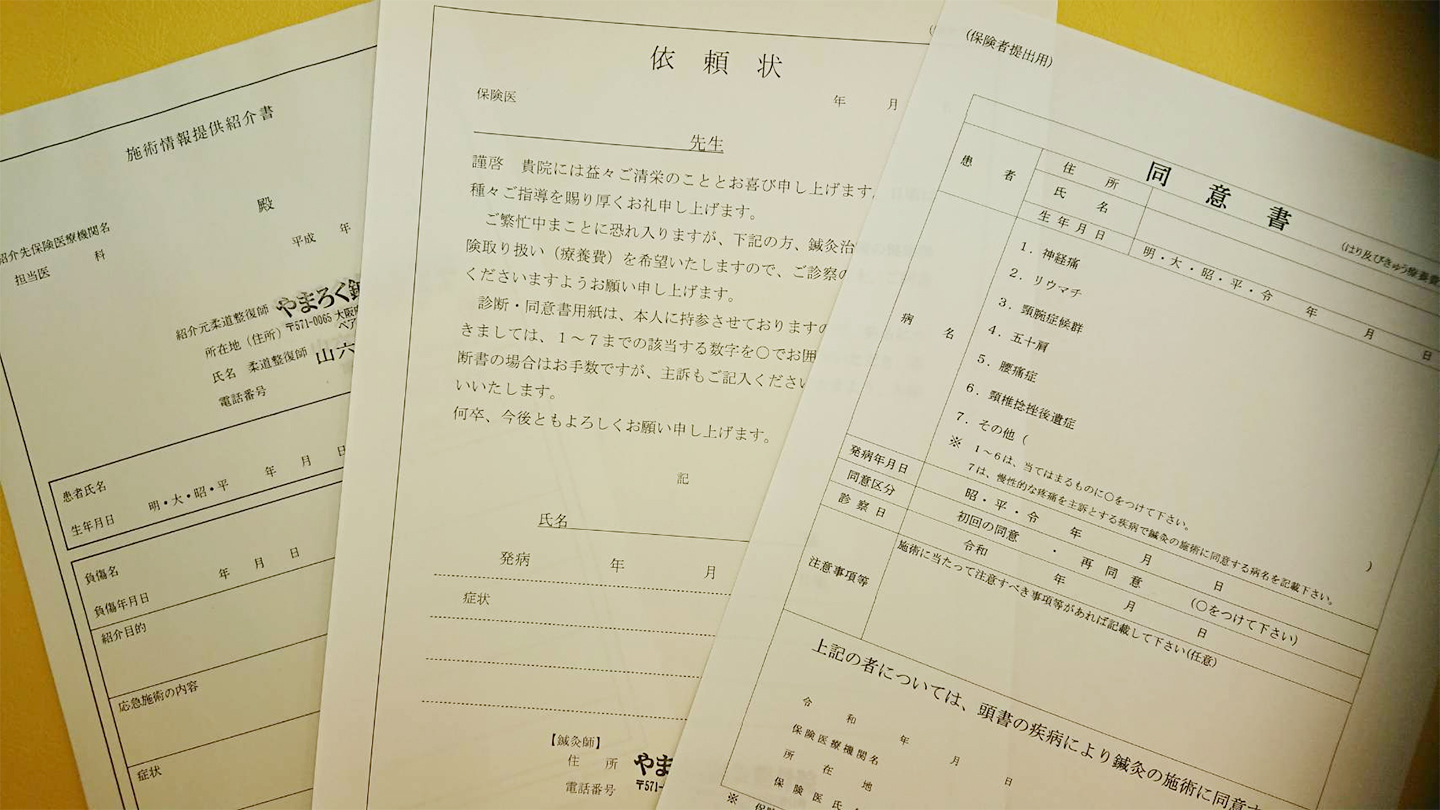 施術情報提供紹介書
殿
紹介先保険医療機関名
担当医 科
平成 年
紹介元柔道整復師 やまろく鍼
所在地（住所） 〒571-0065 大阪府
ベア
氏名 柔道整復師 山六
電話番号
患者氏名
生年月日 明・大・昭・平 年 月 日
負傷名
負傷年月日 年 月 日
紹介目的
応急施術の内容
症状
依頼状
年 月
保険医
先生
謹啓 貴院には益々ご清栄のこととお喜び申し上げます。
種々ご指導を賜り厚くお礼申し上げます。
ご繁忙中まことに恐れ入りますが、下記の方、鍼灸治
険取り扱い（療養費）を希望いたしますので、ご診察の
くださいますようお願い申し上げます。
診断・同意書用紙は、本人に持参させておりますの
きましては、１～７までの該当する数字を〇でお囲
断書の場合はお手数ですが、主訴もご記入ください
いいたします。
何卒、今後ともよろしくお願い申し上げます。
記
氏名
発病 年 月
症状
【鍼灸師】
住所 やま
〒571-
電話番号
(保険者提出用)
同意書
(はり及びきゅう療養費
患者
住所
氏名
生年月日 明・大・昭・平・令 年 月 日
病名
1．神経痛
2．リウマチ
3．頸腕症候群
4．五十肩
5．腰痛症
6．頸椎捻挫後遺症
7．その他（ ）
※ １～６は、当てはまるものに〇をつけて下さい。
７は、慢性的な疼痛を主訴とする疾病で鍼灸の施術に同意する病名を記載下さい。
発病年月日 昭・平・令 年 月 日
同意区分 初回の同意 ・ 再同意 (〇をつけて下さい)
診察日 令和 年 月 日
注意事項等 施術に当たって注意すべき事項等があれば記載して下さい(任意)
上記の者については、頭書の疾病により鍼灸の施術に同意
令和 年 月 日
保険医療機関名
所在地
保険医氏
※